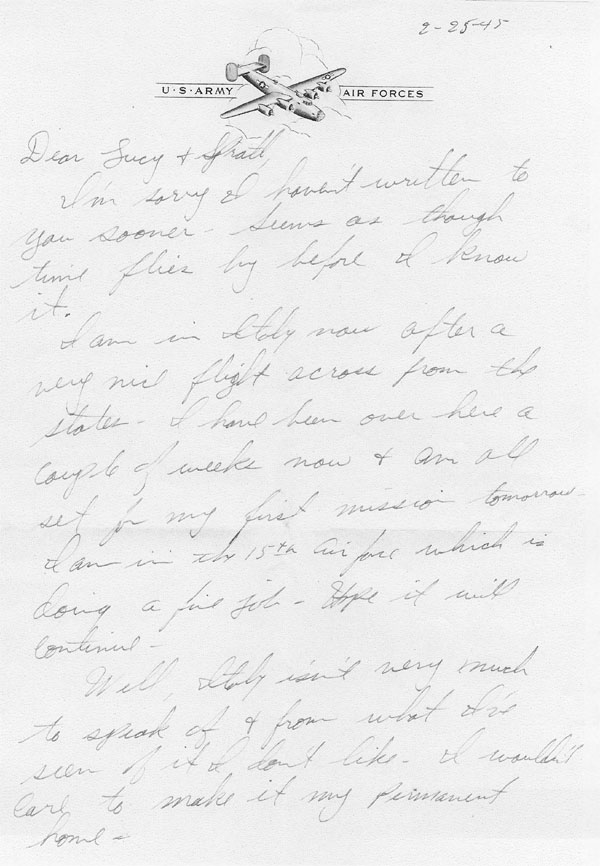 2-25-45
U·S·ARMY AIR FORCES
Dear Lucy &
I'm sorry I haven't written to
you sooner - Seems as though
time flies by before I know
it.
I am in Italy now after a
very nice flight across from the
states - I have been over here a
couple of weeks now & am all
set for my first mission tomorrow -
I am in the 15th Air force which is
doing a fine job - Hope it will
continue -
Well, Italy isn't very much
to speak of & from what I've
seen of it I don't like - I wouldn't
care to make it my permanent
home -